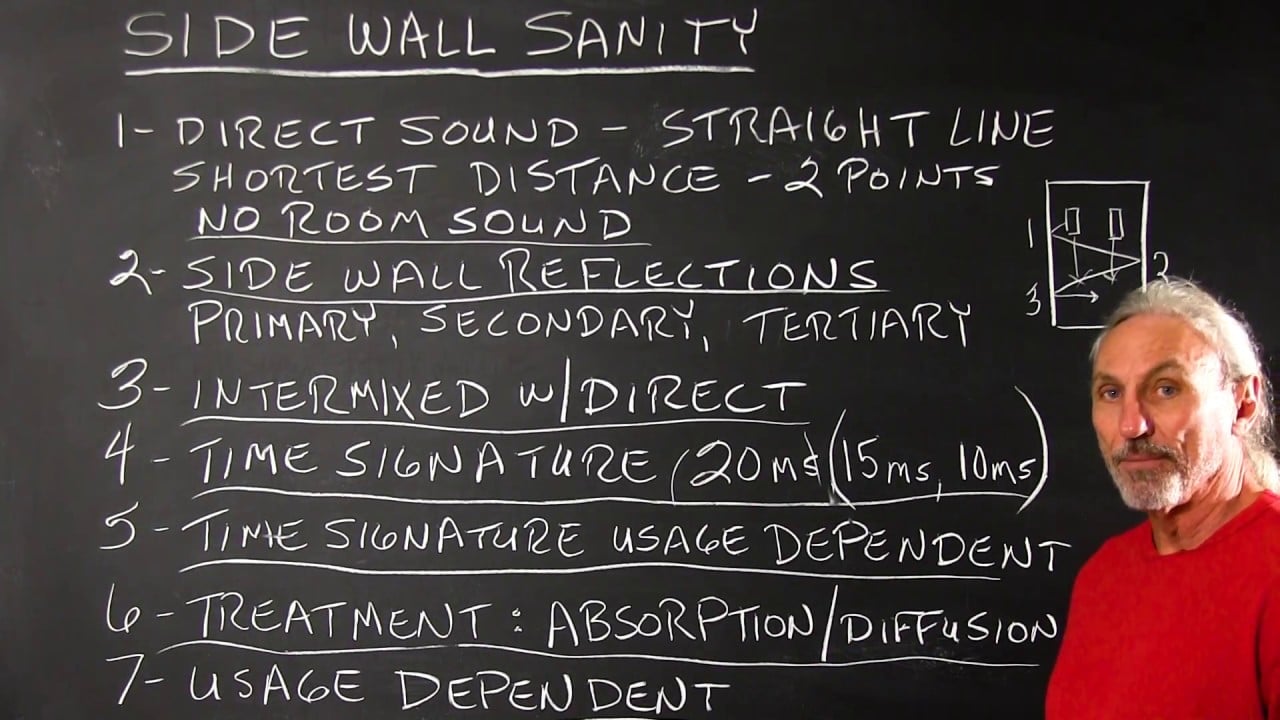 SIDE WALL SANITY
1- DIRECT SOUND - STRAIGHT LINE
SHORTEST DISTANCE - 2 POINTS
NO ROOM SOUND
2- SIDE WALL REFLECTIONS
PRIMARY, SECONDARY, TERTIARY
3- INTERMIXED W/DIRECT
4- TIME SIGNATURE (20ms (15ms, 10ms)
5- TIME SIGNATURE USAGE DEPENDENT
6- TREATMENT: ABSORPTION/DIFFUSION
7- USAGE DEPENDENT
1
2
3